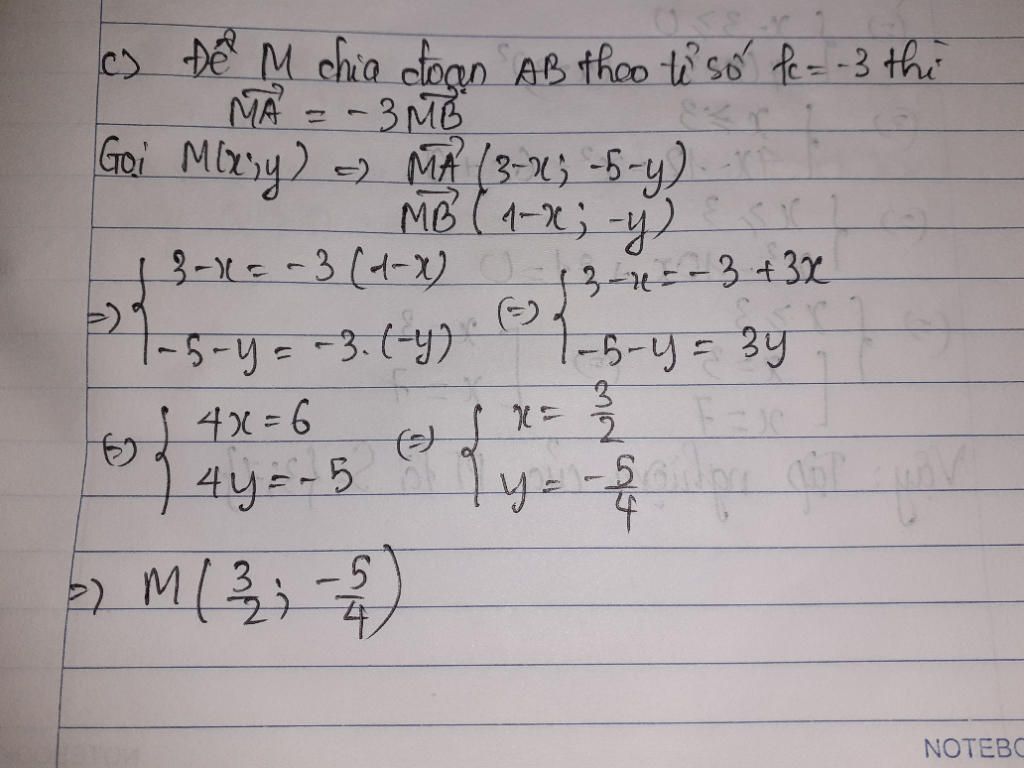 c) Để M chia đoạn AB theo tỉ số k = -3 thì
MA→ = -3MB→
Gọi M(x;y) => MA→ (3-x; -5-y)
MB→ (1-x; -y)
=> { 3-x = -3(1-x) (=) { 3-x = -3+3x
-5-y = -3.(-y) -5-y = 3y
(=) { 4x = 6 (=) { x = 3/2
4y = -5 y = -5/4
=> M(3/2; -5/4)
NOTEBO